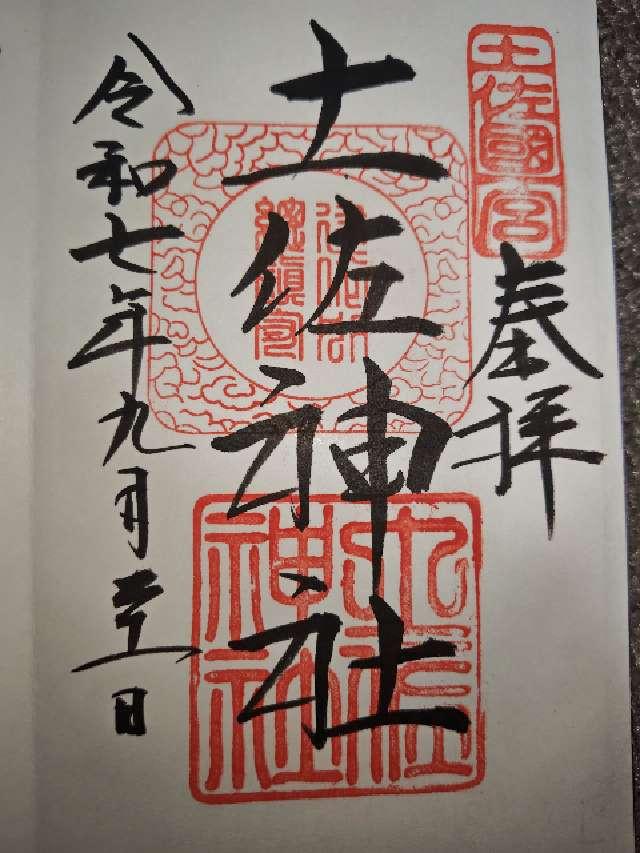 土佐國一宮
奉拝
土佐神社
土佐神社
令和七年九月二十一日